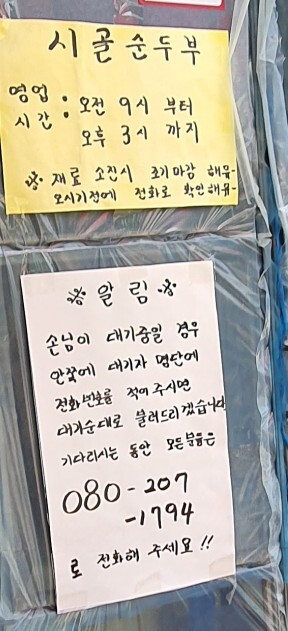 시골순두부
영업 : 오전 9시 부터
시간 : 오후 3시 까지
※ 재료 소진시 조기마감 해유~
오시기전에 전화로 확인해유~
※ 알림 ※
손님이 대기중일 경우
안쪽에 대기자 명단에
전화번호를 적어 주시면
대기순대로 불러드리겠습니다
기다리시는 동안 모든분들은
080-207
-1794
로 전화해 주세요!!